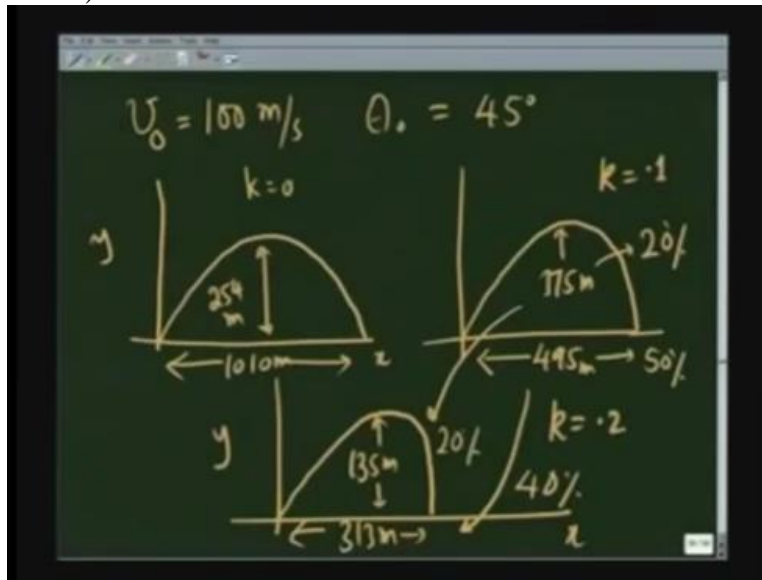 U₀ = 100 m/s θ₀ = 45°
k=0
k = .1
y
254
m
1010m
x
175m
20%
495m
50%
y
135m
20%
k = .2
40%
313m
x